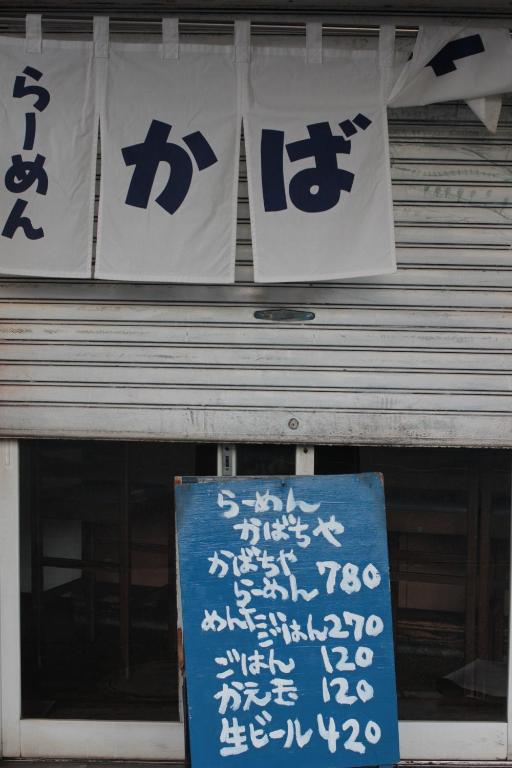 らーめん
かば
らーめん
かばちゃ
かばちゃ
らーめん 780
めんたいごはん 270
ごはん 120
かえ玉 120
生ビール 420